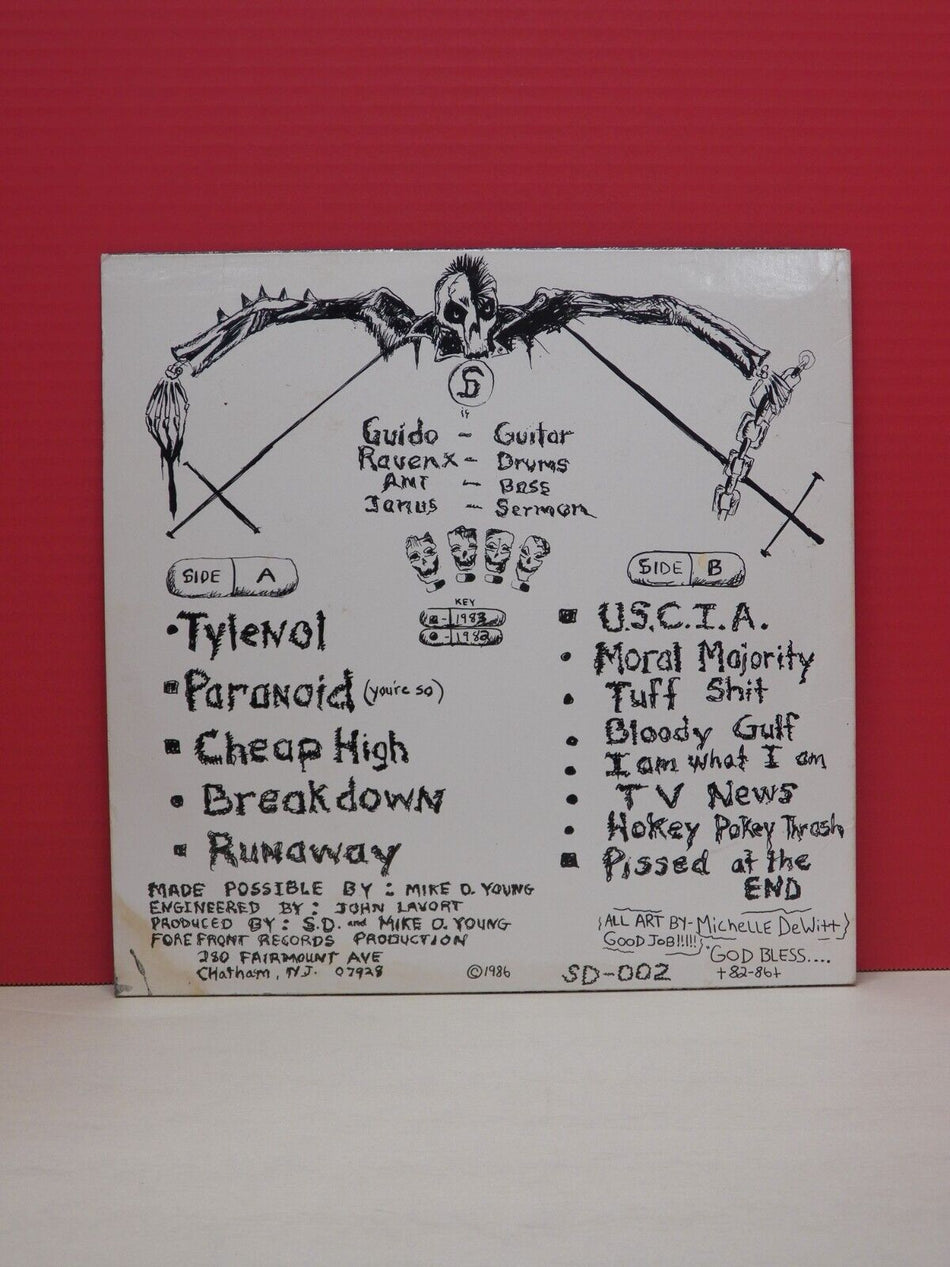 SD
is
Guido - Guitar
Ravenx - Drums
Ant - Bass
Janus - Sermon
SIDE A
• Tylenol
▪ Paranoid (you're so)
▪ Cheap High
• Breakdown
▪ Runaway
KEY
▪ - 1983
• - 1982
SIDE B
▪ U.S.C.I.A.
• Moral Majority
• Tuff Shit
• Bloody Gulf
• I am what I am
• TV News
• Hokey Pokey Thrash
▪ Pissed at the
END
MADE POSSIBLE BY: MIKE D. YOUNG
ENGINEERED BY: JOHN LAVORT
PRODUCED BY: S.D. and MIKE D. YOUNG
FOREFRONT RECORDS PRODUCTION
280 FAIRMOUNT AVE
Chatham, N.J. 07928
©1986
SD-002
{ALL ART BY-Michelle DeWitt}
GOOD JOB!!!!!}
"GOD BLESS....
+82-86+